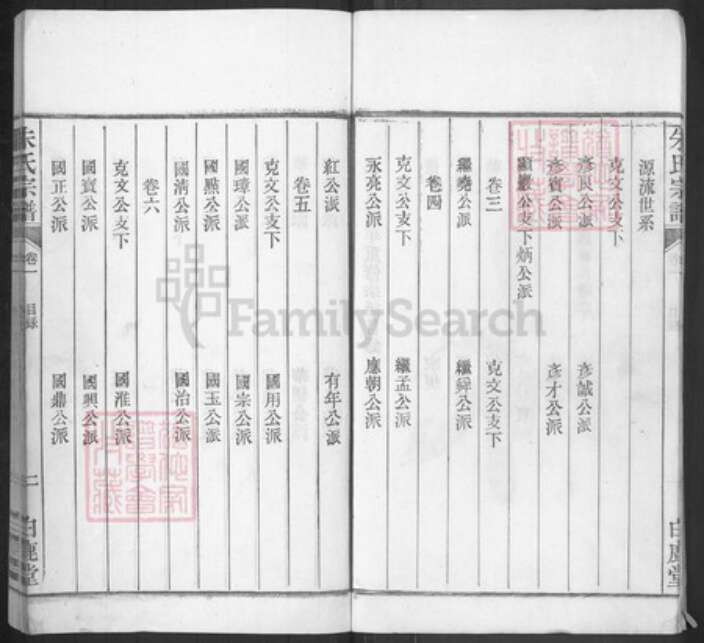 朱氏宗譜
白鹿堂
源流世系
克文公支下
彥良公派 彥誠公派
彥賓公派 彥才公派
顯嚴公支下炳公派
卷三 克文公支下
繼堯公派 繼舜公派
卷四
克文公支下 繼孟公派
永亮公派 應朝公派
紅公派 有年公派
卷五
克文公支下 國用公派
國璋公派 國宗公派
國點公派 國玉公派
國清公派 國治公派
卷六
克文公支下 國淮公派
國賓公派 國興公派
國正公派 國鼎公派
朱氏宗譜
卷一
目錄
二
白鹿堂
FamilySearch